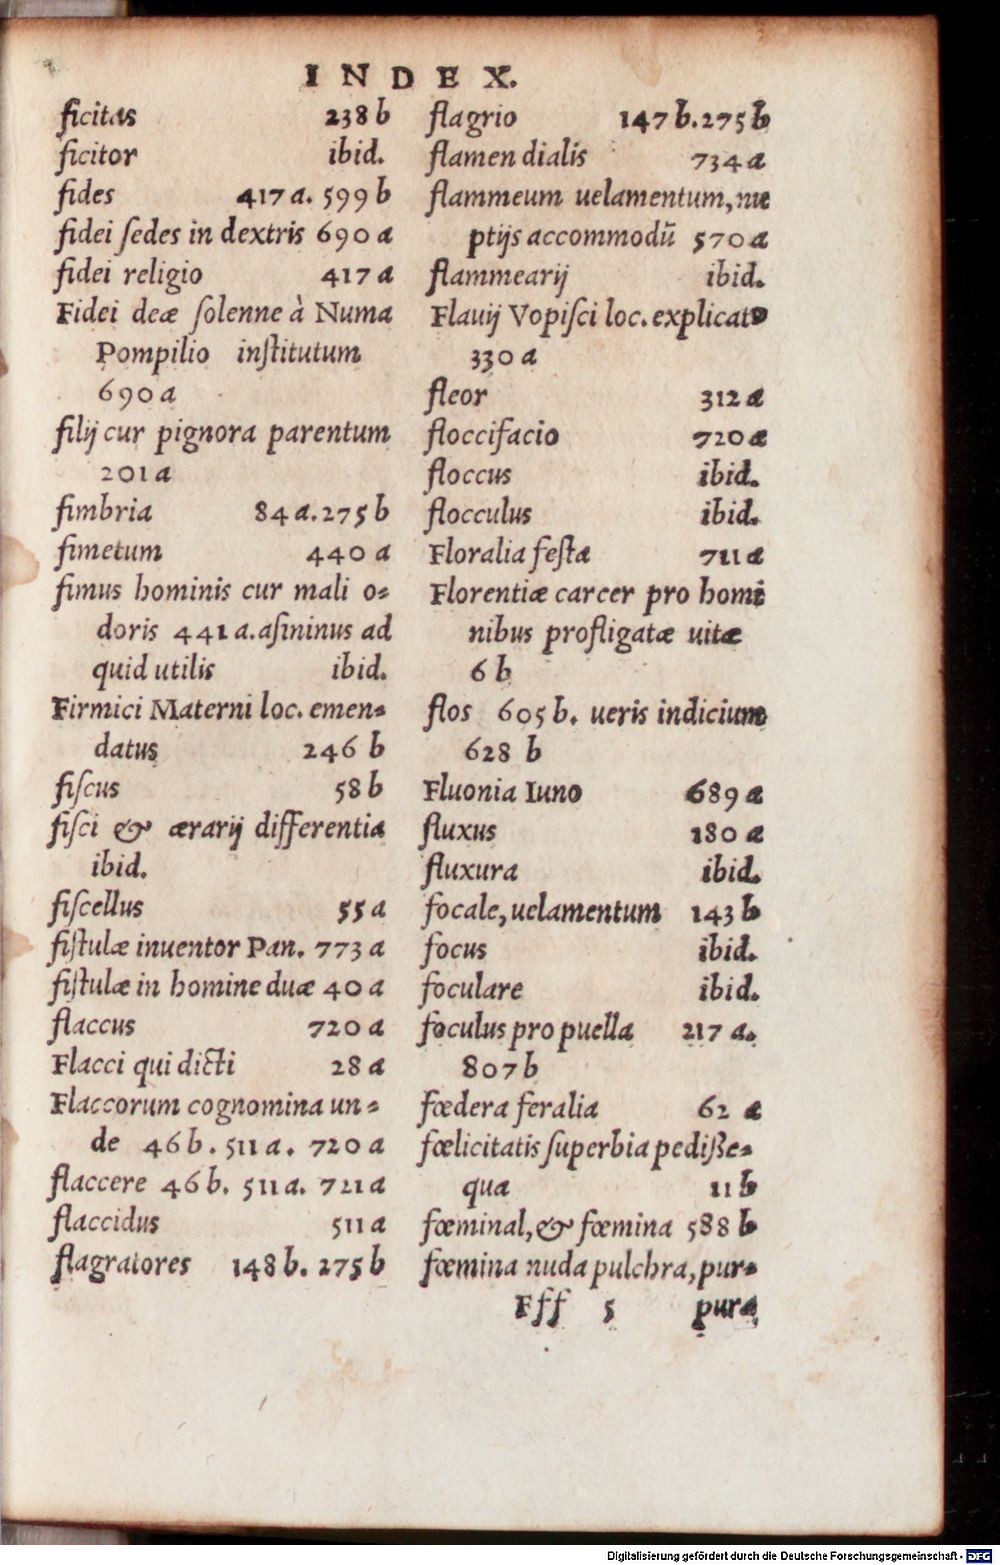 INDEX.
ficitas 238 b
ficitor ibid.
fides 417 a. 599 b
fidei ſedes in dextris 690 a
fidei religio 417 a
Fidei deæ ſolenne à Numa
Pompilio inſtitutum
690 a
filij cur pignora parentum
201 a
fimbria 84 a. 275 b
fimetum 440 a
fimus hominis cur mali o-
doris 441 a. aſininus ad
quid utilis ibid.
Firmici Materni loc. emen-
datus 246 b
fiſcus 58 b
fiſci & ærarij differentia
ibid.
fiſcellus 55 a
fiſtulæ inuentor Pan. 773 a
fiſtulæ in homine duæ 40 a
flaccus 720 a
Flacci qui dicti 28 a
Flaccorum cognomina un-
de 46 b. 511 a. 720 a
flaccere 46 b. 511 a. 721 a
flaccidus 511 a
flagratores 148 b. 275 b
flagrio 147 b. 275 b
flamen dialis 734 a
flammeum uelamentum, nu
ptijs accommodū 570 a
flammearij ibid.
Flauij Vopiſci loc. explicat
330 a
fleor 312 a
floccifacio 720 a
floccus ibid.
flocculus ibid.
Floralia feſta 711 a
Florentiæ carcer pro homi
nibus profligatæ uitæ
6 b
flos 605 b. ueris indicium
628 b
Fluonia Iuno 689 a
fluxus 180 a
fluxura ibid.
focale, uelamentum 143 b
focus ibid.
foculare ibid.
foculus pro puella 217 a.
807 b
fœdera feralia 62 a
fœlicitatis ſuperbia pediſſe-
qua 11 b
fœminal, & fœmina 588 b
fœmina nuda pulchra, pur-
Fff 5 pura
Digitalisierung gefördert durch die Deutsche Forschungsgemeinschaft - DFG